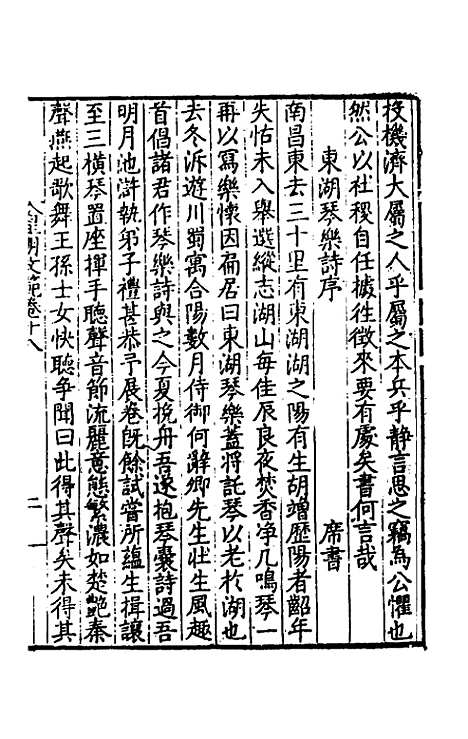 投機濟大屬之人乎屬之本兵乎靜言思之竊為公懼也
然公以社稷自任據往徵來要有處矣書何言哉
東湖琴樂詩序　席書
南昌東去三十里有東湖湖之陽有生胡增歷陽者齠年
失怙未入舉選縱志湖山每佳辰良夜焚香净几鳴琴一
再以寫樂懷因扁居曰東湖琴樂蓋將託琴以老於湖也
去冬泝遊川蜀寓合陽數月侍御何辭卿先生壯生風趣
首倡諸君作琴樂詩與之今夏挽舟吾遂抱琴囊詩過吾
明月池滸執弟子禮甚恭予展卷旣餘試嘗所蘊生揖讓
至三橫琴置座揮手聽聲音節流麗意態繁濃如楚艷秦
聲燕起歌舞王孫士女快聽争聞曰此得其聲矣未得其
皇明文範卷十八
二